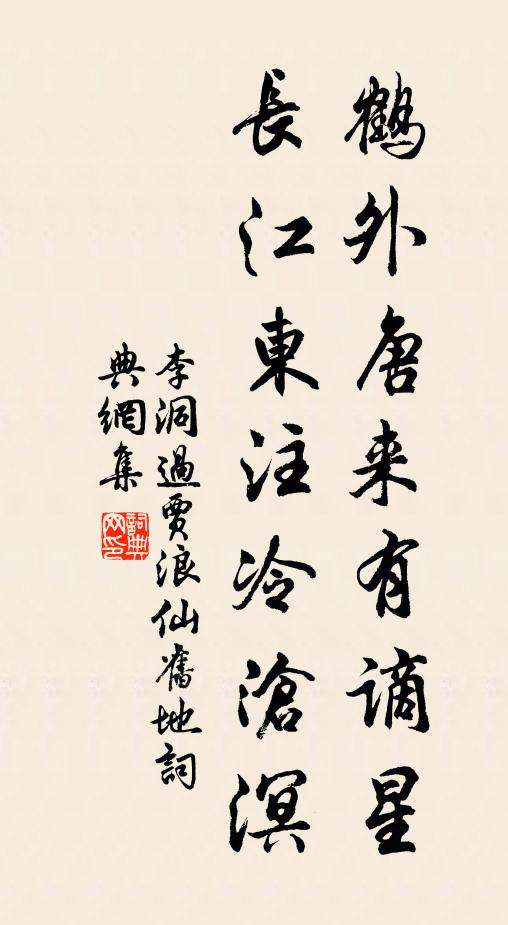 鶴外唐来有謫星
長江東注冷滄溟
李洞過賈浪仙舊地詞
典網集
詞典网印